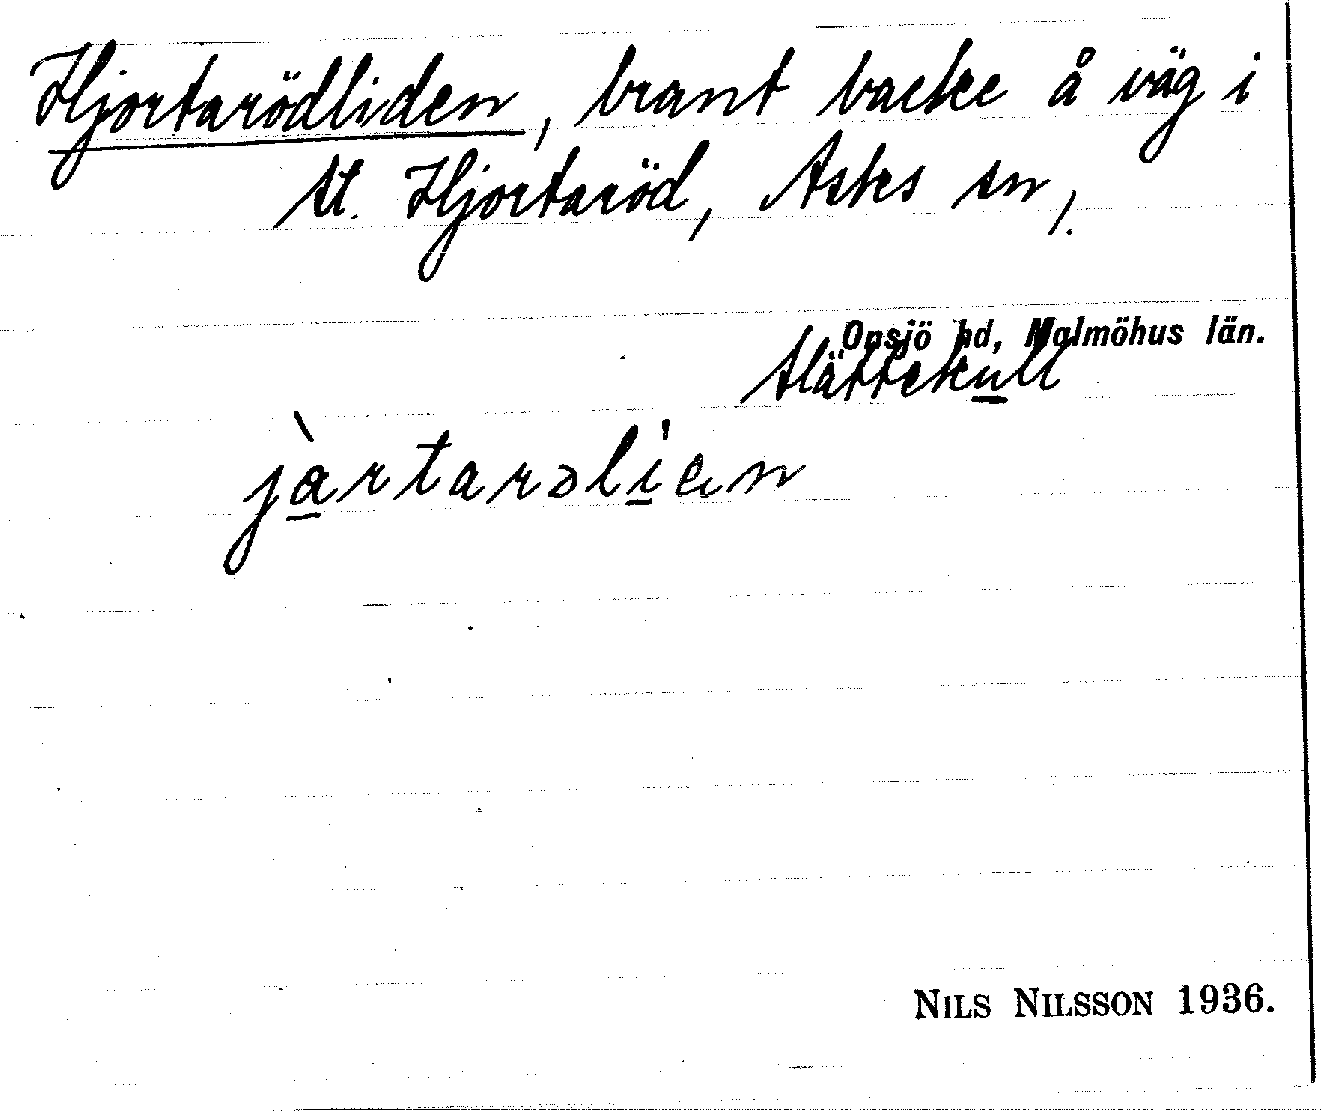 Hjortarödliden, brant backe å väg i
St. Hjortaröd, Asks sn,
Onsjö hd, Malmöhus län.
Slättekull
jàrtarəlíen
NILS NILSSON 1936.